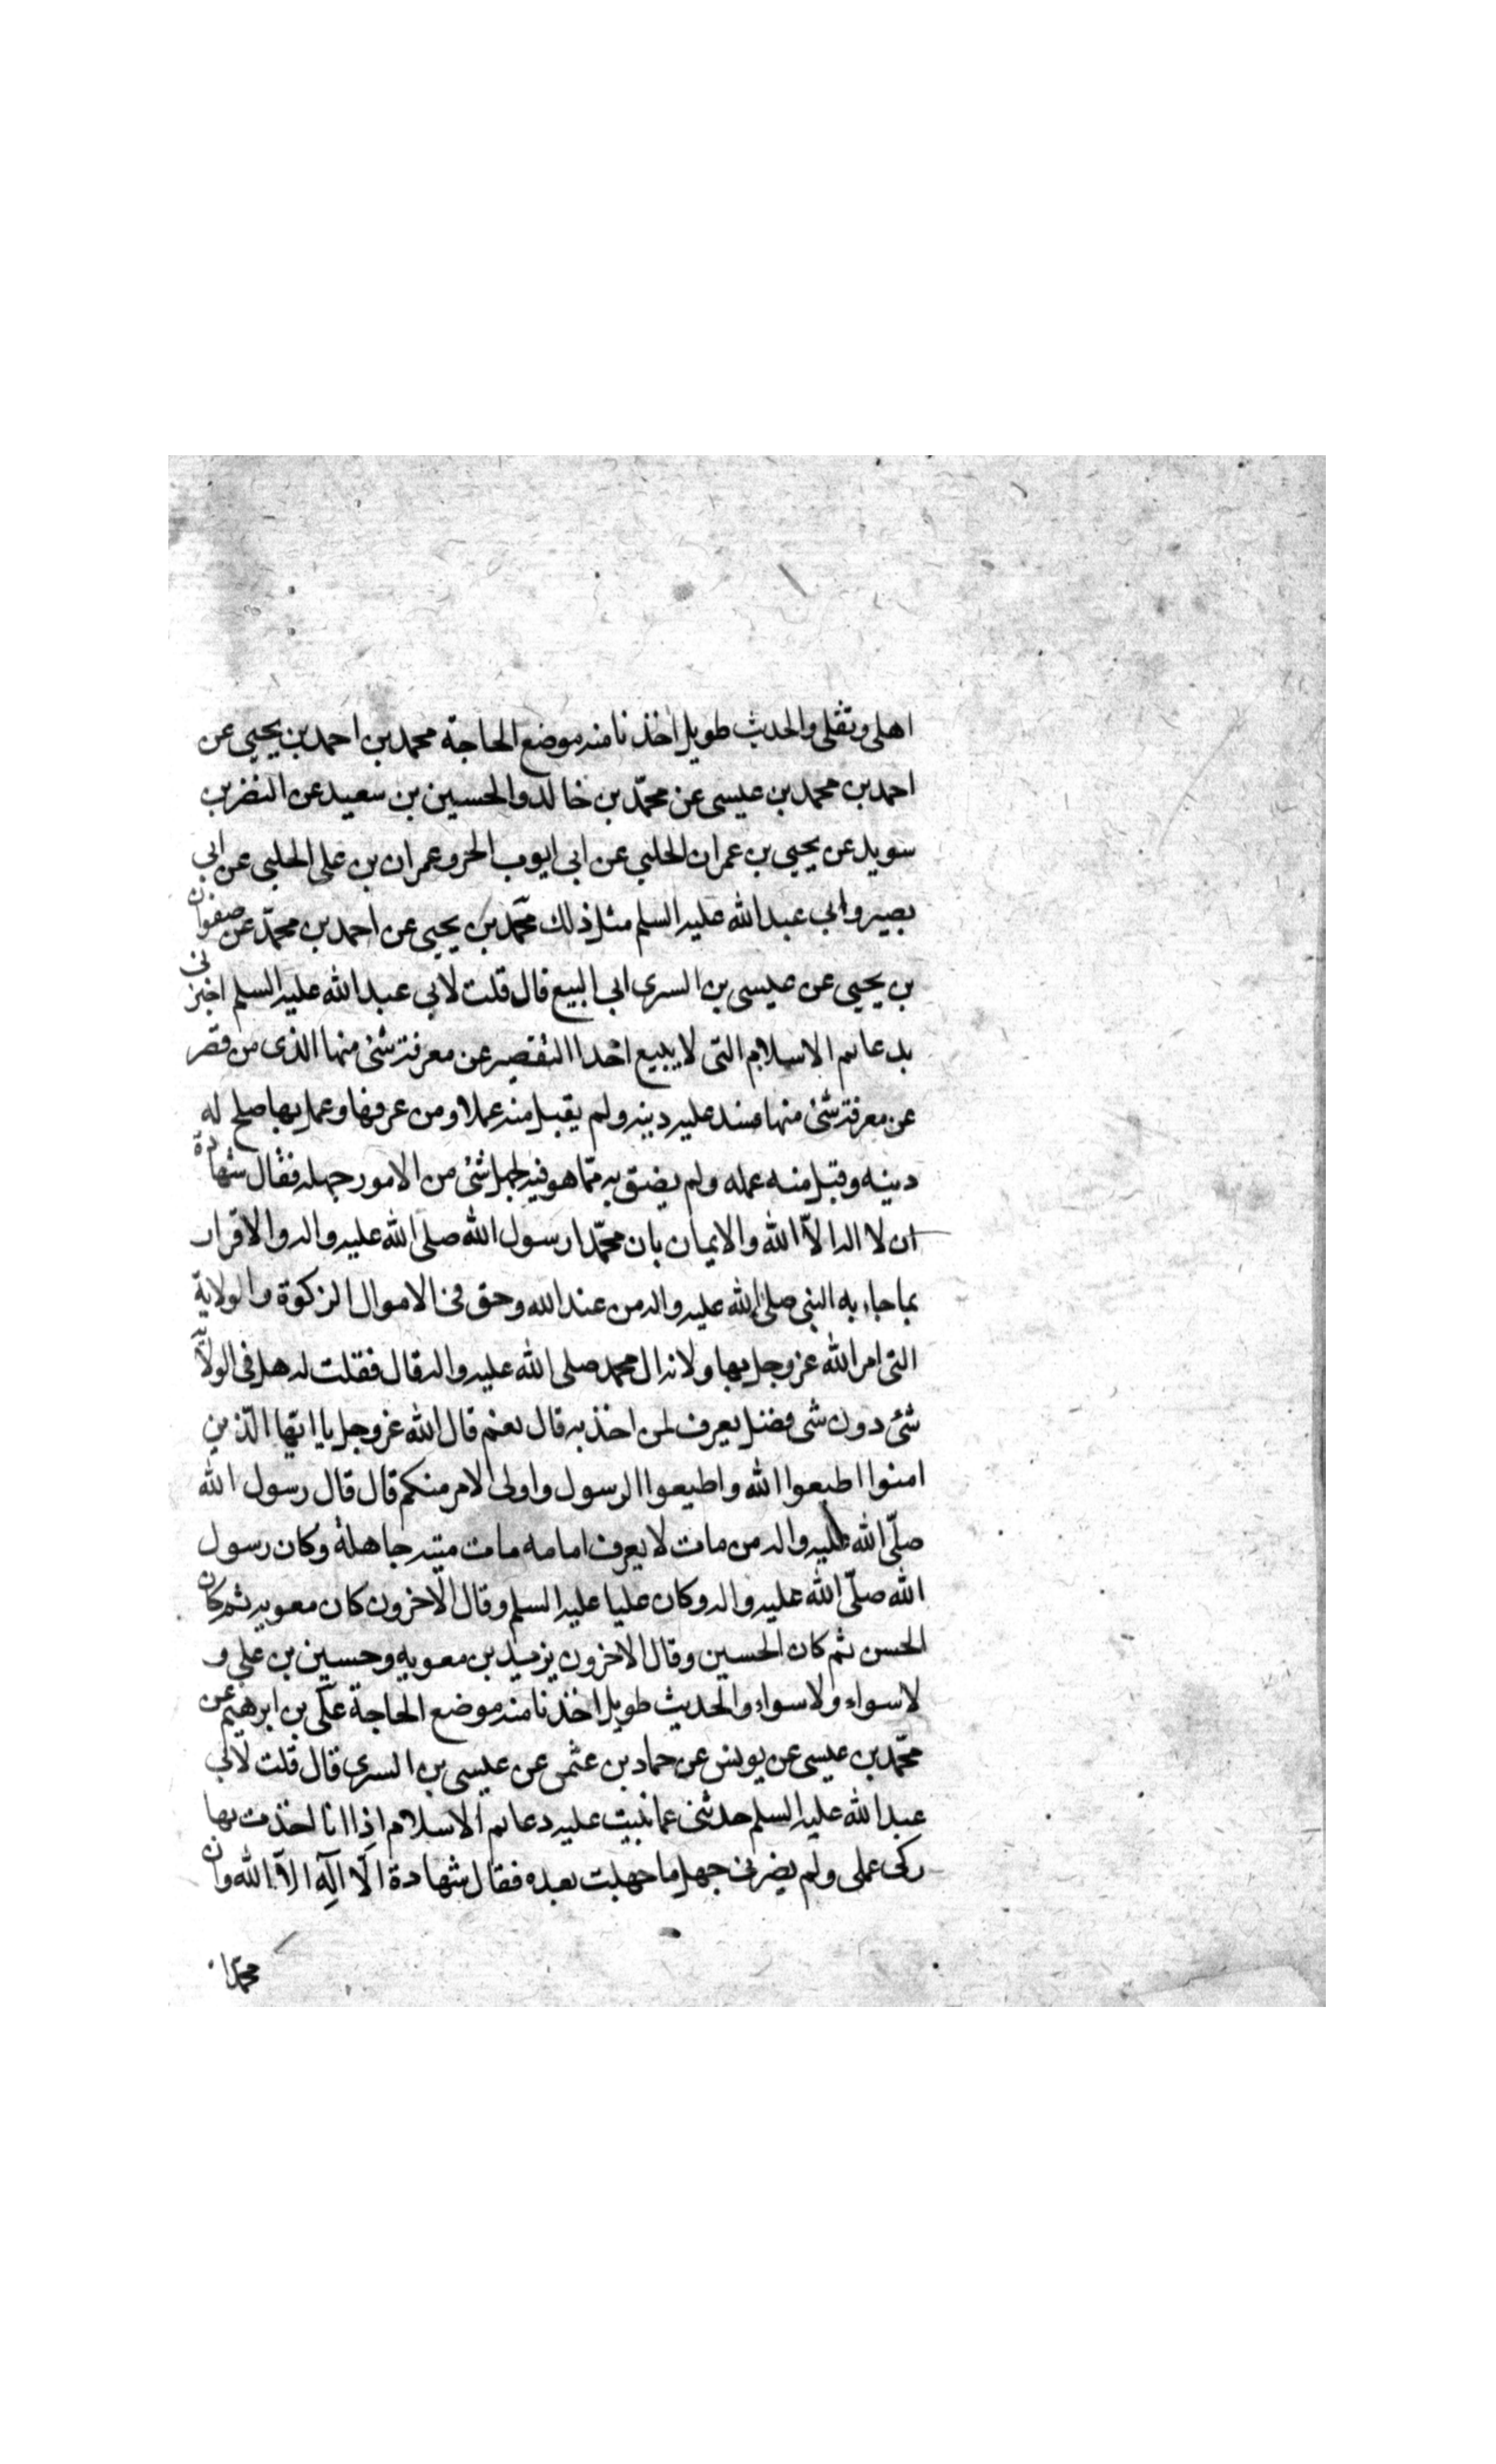 اهلى وثقلى والحديث طويل اخذنا منه موضع الحاجة محمد بن احمد بن يحيى عن
احمد بن محمد بن عيسى عن محمّد بن خالد والحسين بن سعيد عن النضر بن
سويد عن يحيى بن عمران الحلبى عن ابى ايوب الحر وعمران بن على الحلبى عن ابى
بصير وابى عبد الله عليه السلم مثل ذلك محمّد بن يحيى عن احمد بن محمّد عن صفوان
بن يحيى عن عيسى بن السرى ابى اليسع قال قلت لابى عبد الله عليه السلم اخبرنى
بدعائم الاسلام التى لا يسع احدا التقصير عن معرفة شئ منها الذى من قصر
عن معرفة شئ منها فسد عليه دينه ولم يقبل منه عملا ومن عرفها وعمل بها صلح له
دينه وقبل منه عمله ولم يضق به ممّا هو فيه لجهل شئ من الامور جهله فقال شهادة
ان لا اله الاّ الله والايمان بان محمّدا رسول الله صلى الله عليه واله والاقرار
بما جاء به النبى صلى الله عليه واله من عند الله وحق فى الاموال الزكوة والولاية
التى امر الله عز وجل بها ولاية ال محمد صلى الله عليه واله قال فقلت له هل فى الولاية
شئ دون شى فضل يعرف لمن اخذ به قال نعم قال الله عز وجل يا ايّها الّذين
امنوا اطيعوا الله واطيعوا الرسول واولى الامر منكم قال قال رسول الله
صلّى الله عليه واله من مات لا يعرف امامه مات ميتة جاهلة وكان رسول
الله صلّى الله عليه واله وكان عليا عليه السلم وقال الآخرون كان معويه ثم كان
الحسن ثم كان الحسين وقال الاخرون يزيد بن معويه وحسين بن على و
لا سواء ولا سواء والحديث طويل اخذنا منه موضع الحاجة علّى بن ابرهيم عن
محمّد بن عيسى عن يونس عن حماد بن عثمن عن عيسى بن السرى قال قلت لابى
عبد الله عليه السلم حدثنى عما بنيت عليه دعائم الاسلام اذا انا اخذت بها
زكى عملى ولم يضرنى جهل ما جهلت بعده فقال شهادة الّا اله الاّ الله وان
محمّدا